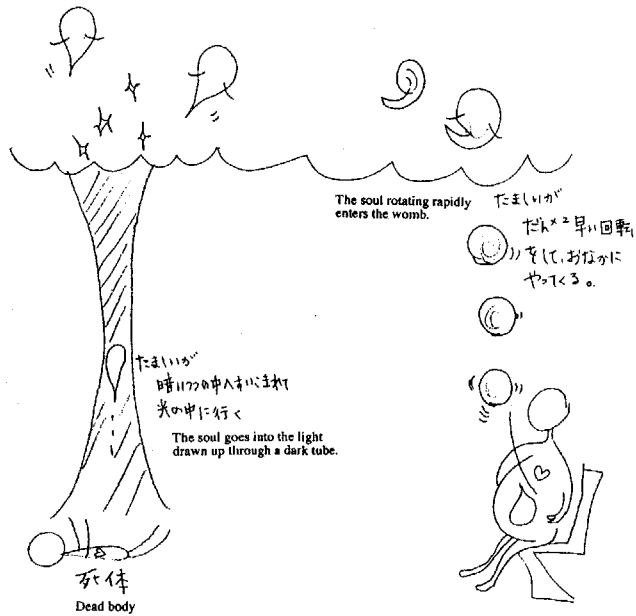 The soul rotating rapidly
enters the womb.
たましいが
だん×2早い回転
をして、おなかに
やってくる。
たましいが
暗いつつの中へすいこまれて
光の中に行く
The soul goes into the light
drawn up through a dark tube.
死体
Dead body